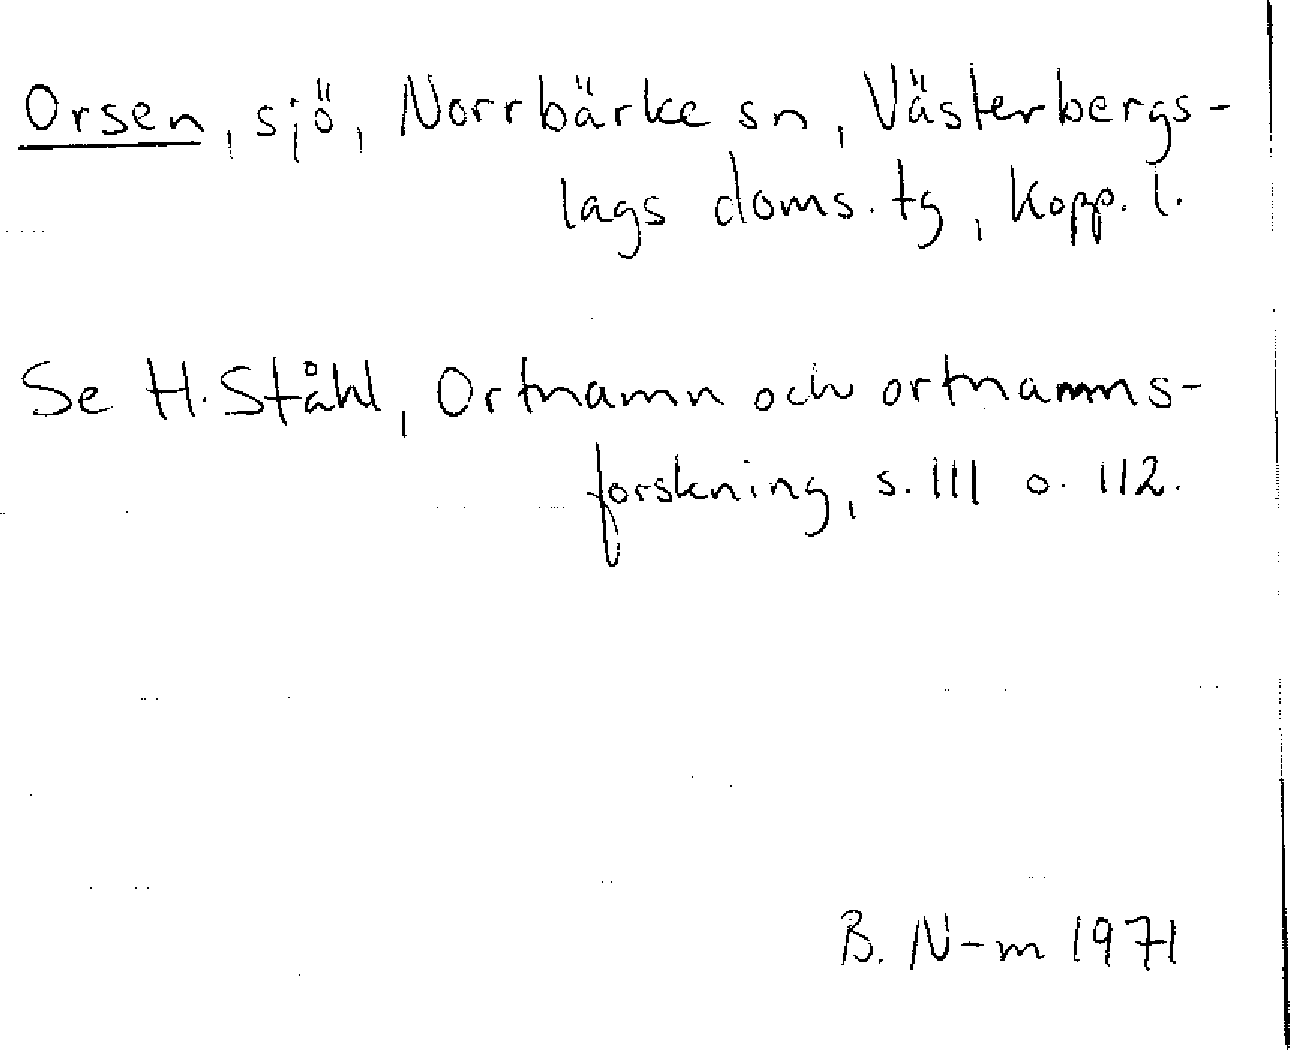 Orsen, sjö, Norrbärke sn, Västerbergs-
lags doms. tg, Kopp. l.
Se H. Ståhl, Ortnamn och ortnamns-
forskning, s. 111 o. 112.
B. N-m 1971